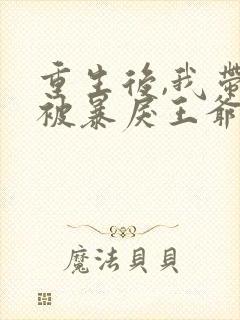 重生後,我帶
被暴戾王爺
魔法貝貝